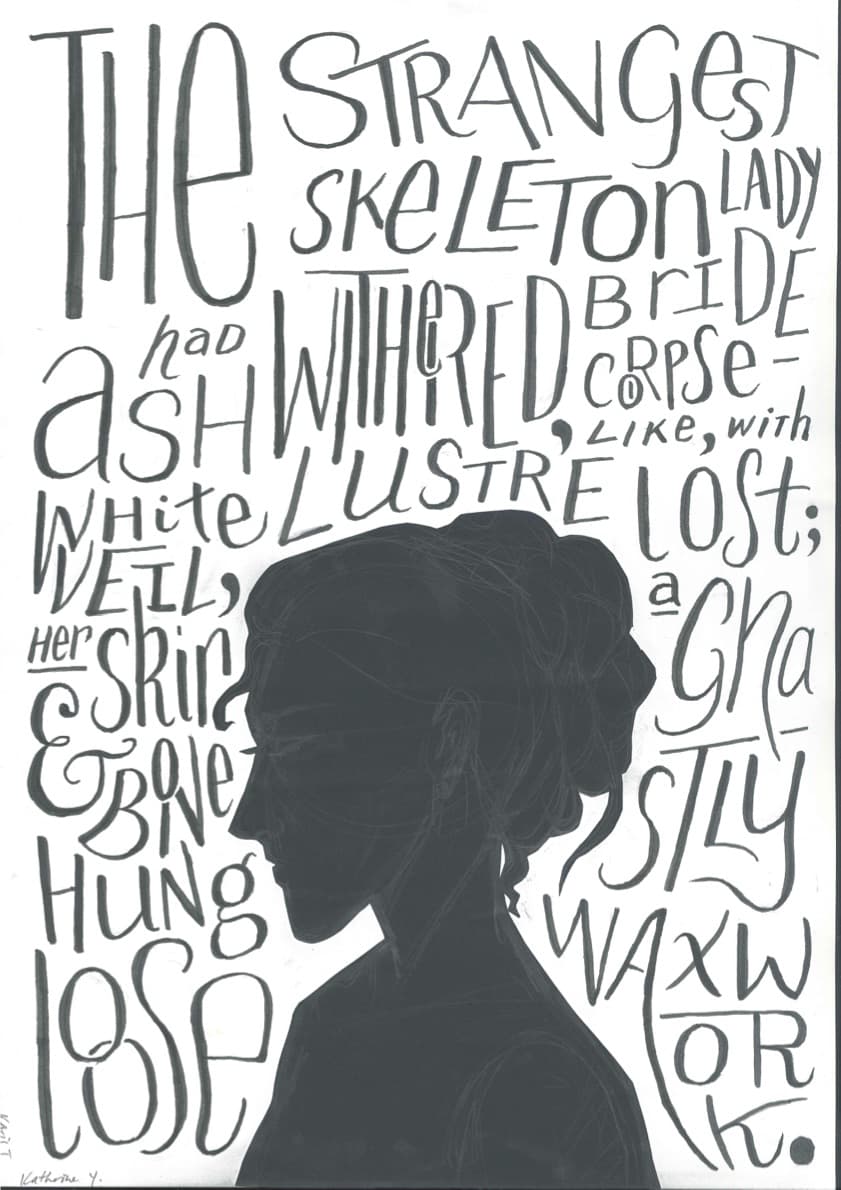 THe STRANGesT
SKeLETon LADY
BrIDE
had WITHeRED, CORPSe-
LIKe, with
aSH
WHite
VEIL,
LUSTRE lOSt;
Her skin
& BONe
HUNg
lOOSe
a Gha
STLY
WAXW
OR
K.
Katherine Y.